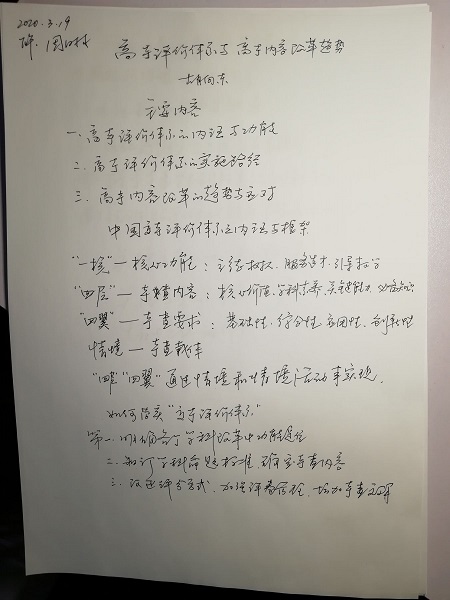 2020.3.19
高考评价体系与高考内容改革趋势
胡向东
主要内容
一.高考评价体系的内涵与功能
二.高考评价体系的实施路径
三.高考内容改革的趋势与应对
中国高考评价体系之内涵与框架
"一核"—核心功能:立德树人、服务选才、引导教学
"四层"—考查内容:核心价值、学科素养、关键能力、必备知识
"四翼"—考查要求:基础性、综合性、应用性、创新性
情境—考查载体
"四层""四翼"通过情境和情境活动来实现.
如何落实"高考评价体系"
第一.明确各门学科改革中功能定位
二.制订学科命题标准,确定考查内容
三.改进评分方式,加强评卷管理,